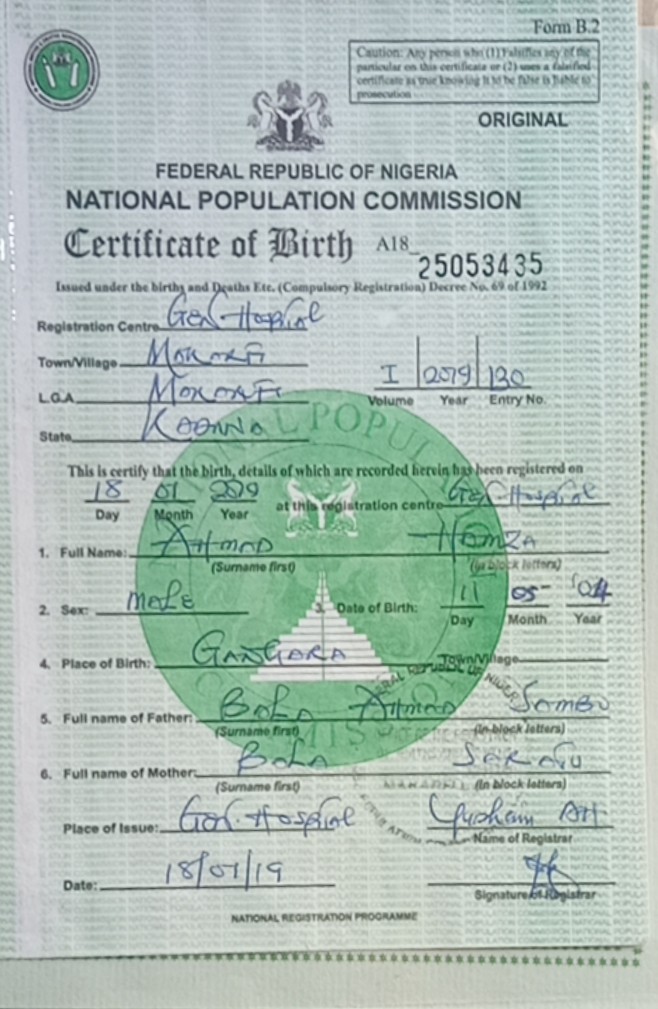 Form B.2
Caution: Any person who (1) Falsifies any of the
particular on this certificate or (2) uses a falsified
certificate as true knowing it to be false is liable to
prosecution
ORIGINAL
FEDERAL REPUBLIC OF NIGERIA
NATIONAL POPULATION COMMISSION
Certificate of Birth A18 25053435
Issued under the births and Deaths Etc. (Compulsory Registration) Decree No. 69 of 1992
Registration Centre Gen Hospital
Town/Village MAKARFI
L.G.A MAKARFI
I 2019 130
Volume Year Entry No.
State KADUNA
This is certify that the birth, details of which are recorded herein has been registered on
18 01 2019 at this registration centre Gen Hospital
Day Month Year
1. Full Name: AHMAD HAMZA
(Surname first) (in block letters)
2. Sex: MALE 3. Date of Birth: 11 05 04
Day Month Year
4. Place of Birth: GANGARA Town/Village
5. Full name of Father: BALA AHMAD SAMBO
(Surname first) (In block letters)
6. Full name of Mother: BALA
(Surname first) (In block letters)
Place of Issue: Gen Hospital
Name of Registrar
Date: 18/01/19
Signature of Registrar
NATIONAL REGISTRATION PROGRAMME